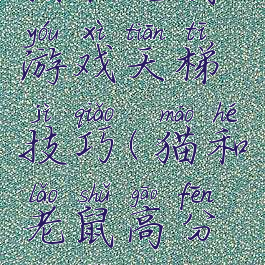 yóu xì tiān tī
游戏天梯
jì qiǎo māo hé
技巧(猫和
lǎo shǔ gāo fēn
老鼠高分